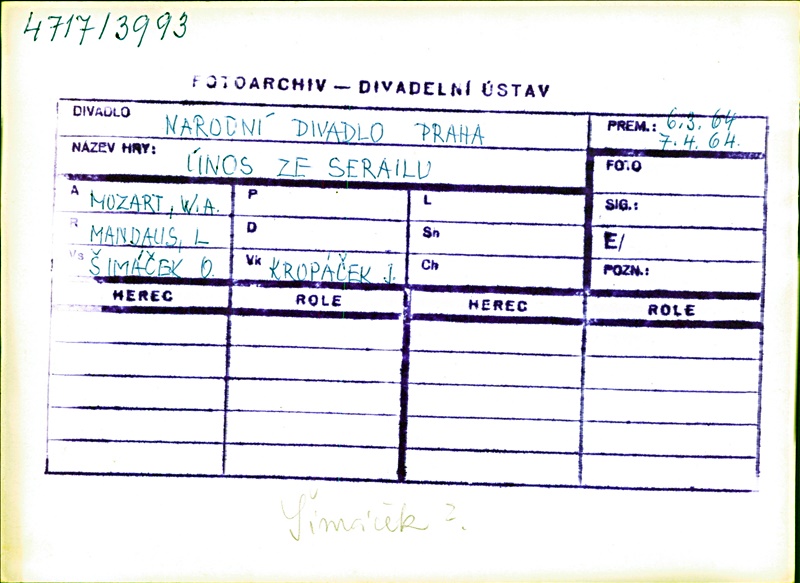 4717/3993
FOTOARCHIV — DIVADELNÍ ÚSTAV
DIVADLO NARODNÍ DIVADLO PRAHA
PREM.: 6.3. 64
7.4. 64.
NÁZEV HRY: ÚNOS ZE SERAILU
FOTO
A MOZART, W.A.
P
L
SIG.:
R MANDAUS, L
D
Sn
E/
Vs ŠIMÁČEK O.
Vk KROPÁČEK J.
Ch
POZN.:
HEREC ROLE HEREC ROLE
Šimáček ?.